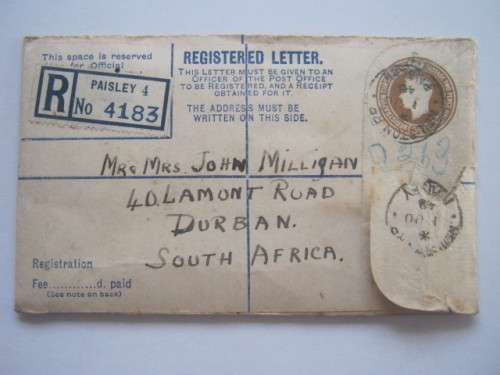 This space is reserved
for Official
R
PAISLEY 4
No 4183
REGISTERED LETTER.
THIS LETTER MUST BE GIVEN TO AN
OFFICER OF THE POST OFFICE
TO BE REGISTERED, AND A RECEIPT
OBTAINED FOR IT.
THE ADDRESS MUST BE
WRITTEN ON THIS SIDE.
MR & MRS. JOHN MILLIGAN
40, LAMONT ROAD
DURBAN.
SOUTH AFRICA.
Registration
Fee............d. paid
(See note on back)